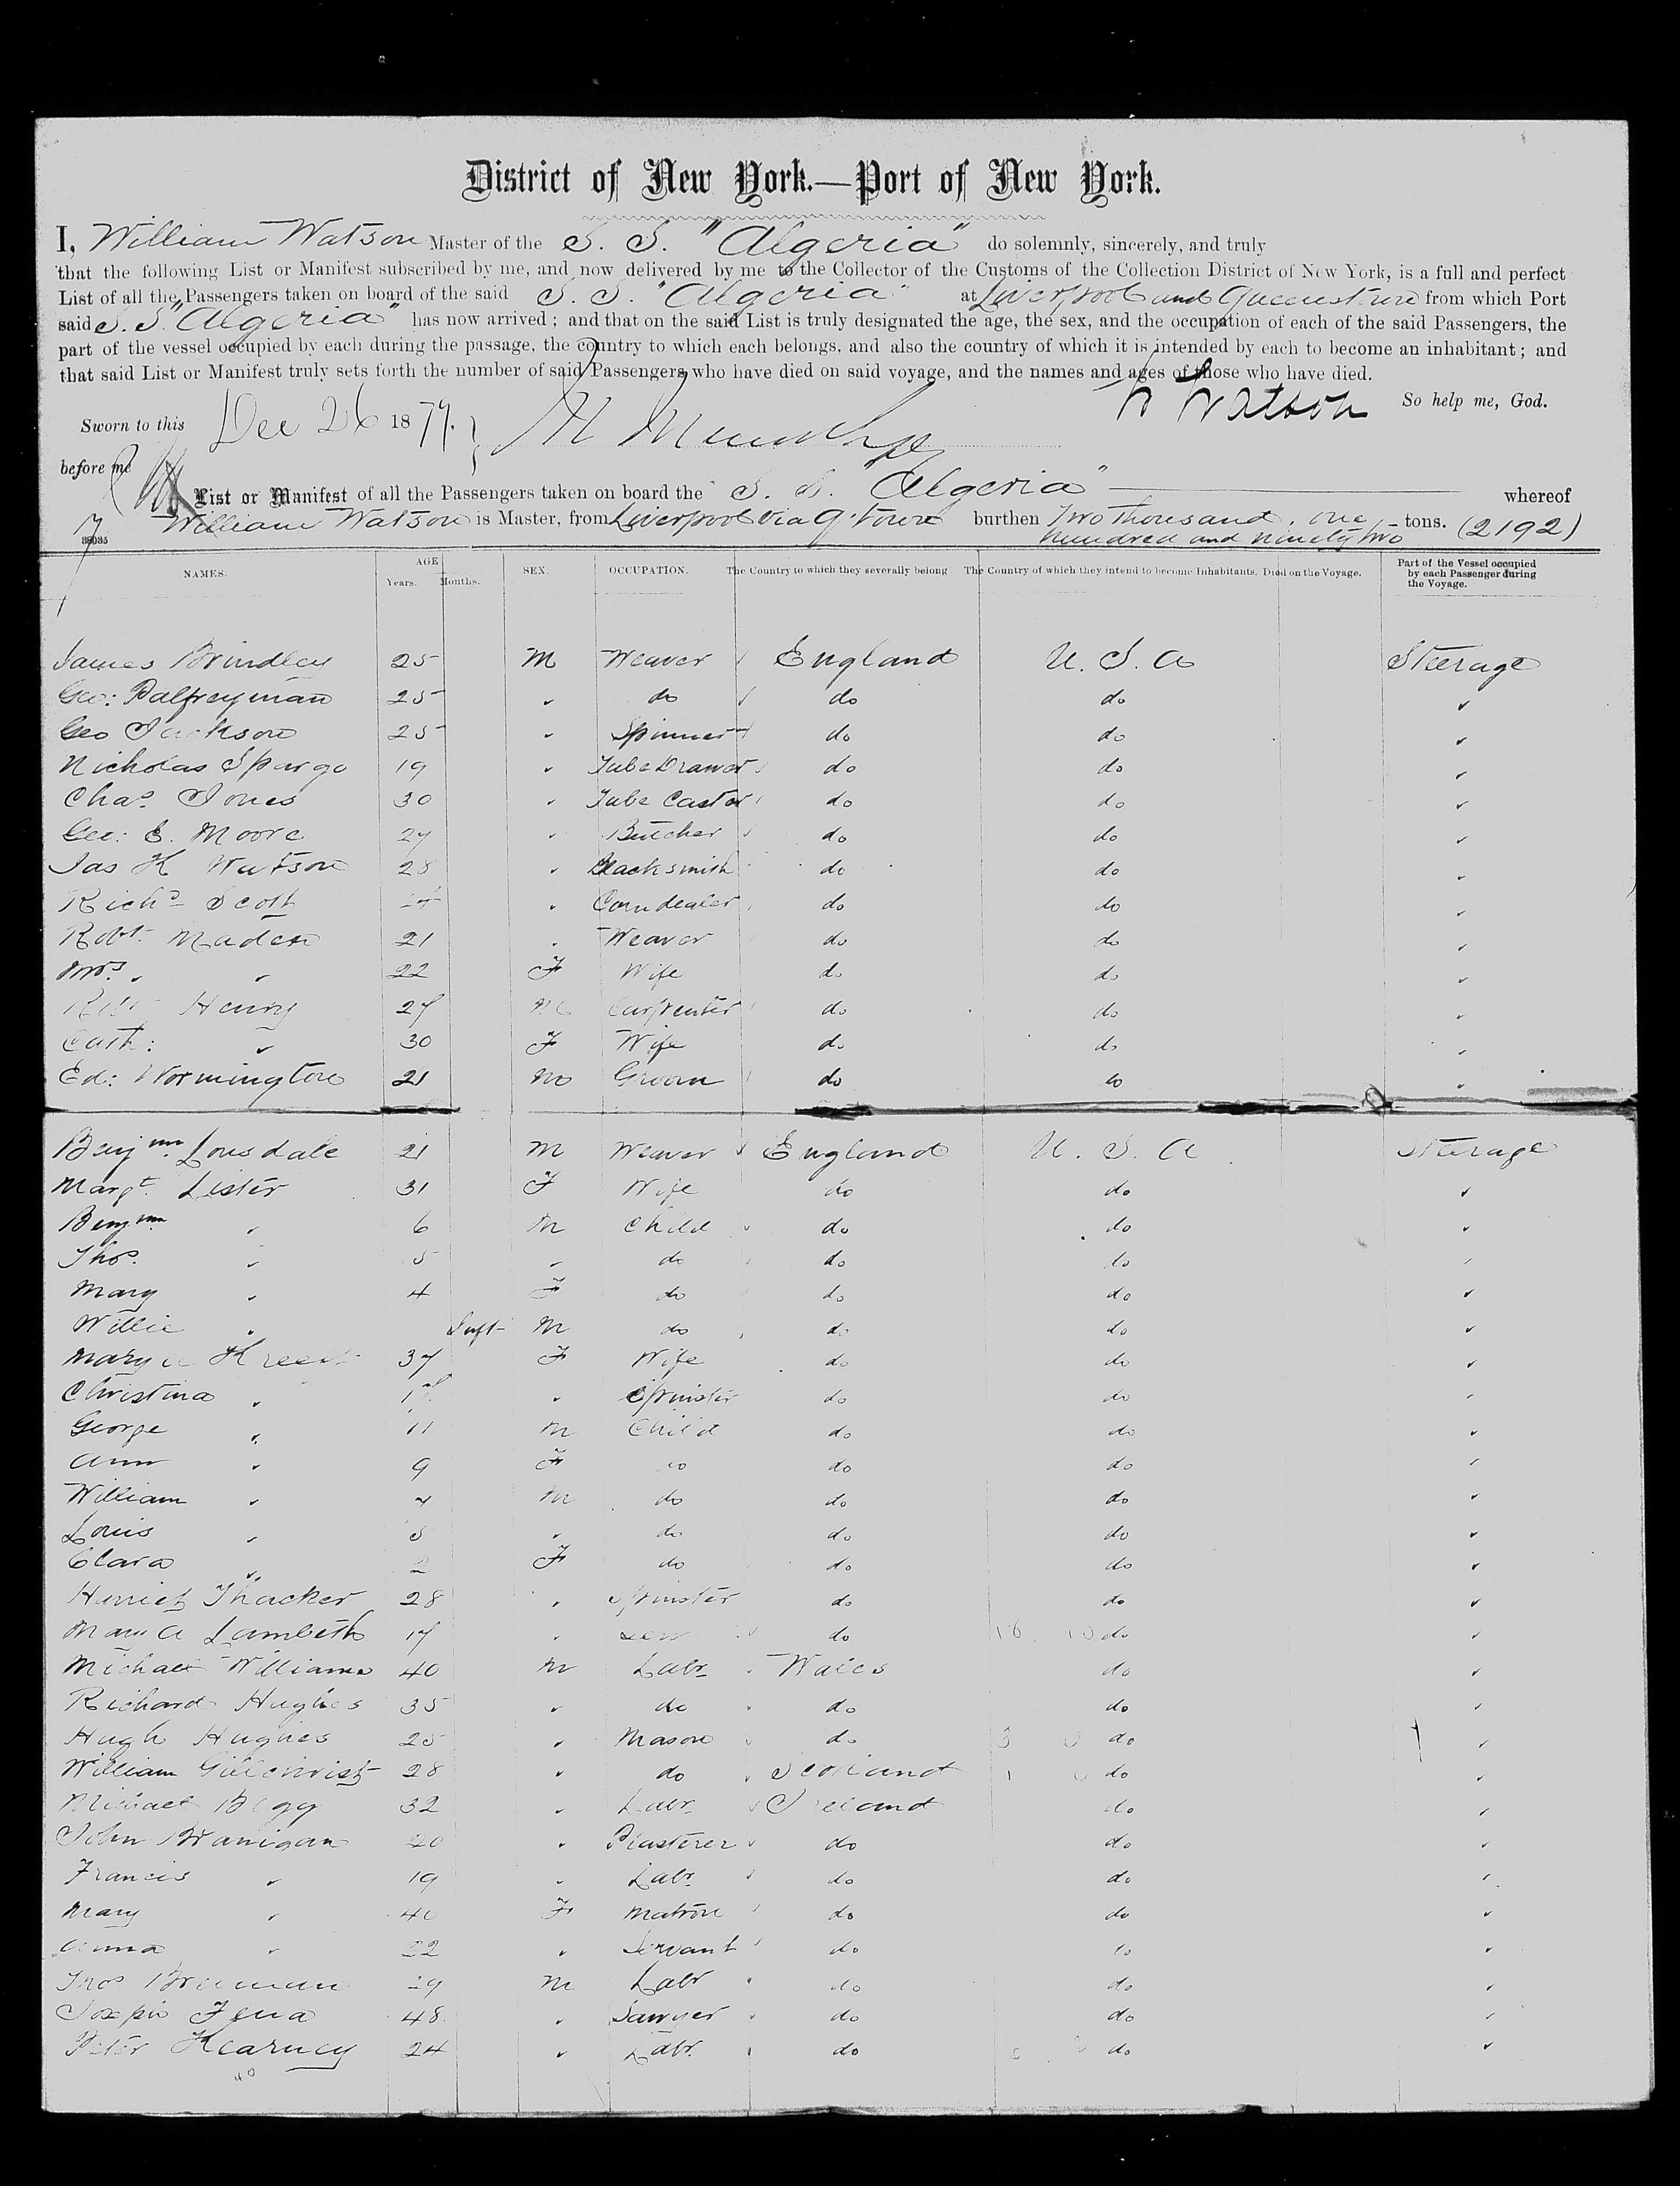 District of New York.—Port of New York.
I, William Watson Master of the S. S. "Algeria" do solemnly, sincerely, and truly
that the following List or Manifest subscribed by me, and now delivered by me to the Collector of the Customs of the Collection District of New York, is a full and perfect
List of all the Passengers taken on board of the said S. S. "Algeria" at Liverpool and Queenstown from which Port
said S. S "Algeria" has now arrived; and that on the said List is truly designated the age, the sex, and the occupation of each of the said Passengers, the
part of the vessel occupied by each during the passage, the country to which each belongs, and also the country of which it is intended by each to become an inhabitant; and
that said List or Manifest truly sets forth the number of said Passengers who have died on said voyage, and the names and ages of those who have died.
W Watson So help me, God.
Sworn to this Dec 26 1879.
before me
List or Manifest of all the Passengers taken on board the S. S. "Algeria" whereof
William Watson is Master, from Liverpool via Q'town burthen Two Thousand, one hundred and ninety two tons. (2192)
38035
NAMES. AGE Years. Months. SEX. OCCUPATION. The Country to which they severally belong The Country of which they intend to become Inhabitants. Died on the Voyage. Part of the Vessel occupied by each Passenger during the Voyage.
James Brindley 25 M Weaver England U. S. A Steerage
Geo: Palfreyman 25 " do do do "
Geo Jackson 25 " Spinner do do "
Nicholas Spargo 19 " Tube Drawer do do "
Chas. Jones 30 " Tube Caster do do "
Geo: E. Moore 27 " Butcher do do "
Jas H Watson 28 " Blacksmith do do "
Richd Scott " Corndealer do do "
Robt. Maden 21 " Weaver do do "
Mrs. " 22 F Wife do do "
Henry 27 M Carpenter do do "
Cath: " 30 F Wife do do "
Ed: Wormington 21 M Groom do do "
Benjmn. Lonsdale 21 M Weaver England U. S. A Steerage
Margt. Lister 31 F Wife do do "
Benjmn " 6 M Child do do "
Thos. " 5 " do do do "
Mary " 4 F do do do "
Willie " Inft M do do do "
Mary A 37 F Wife do do "
Christina " " Spinster do do "
George " 11 M Child do do "
Ann " 9 F do do do "
William " 7 M do do do "
Louis " 5 " do do do "
Clara " 2 F do do do "
Harriet Thacker 28 " Spinster do do "
Mary A Lambeth 17 " do do "
Michael Williams 40 M Labr Wales do "
Richard Hughes 35 " do do do "
Hugh Hughes 25 " Mason do do "
William Gillchrist 28 " do Scotland do "
Michael Begg 32 " Labr Ireland do "
John Branigan 20 " Plasterer do do "
Francis " 19 " Labr do do "
Mary " 40 F Matron do do "
Anna " 22 " Servant do do "
Thos Brennan 29 M Labr do do "
Joseph 48 " Sawyer do do "
Peter Kearney 24 " Labr. do do "